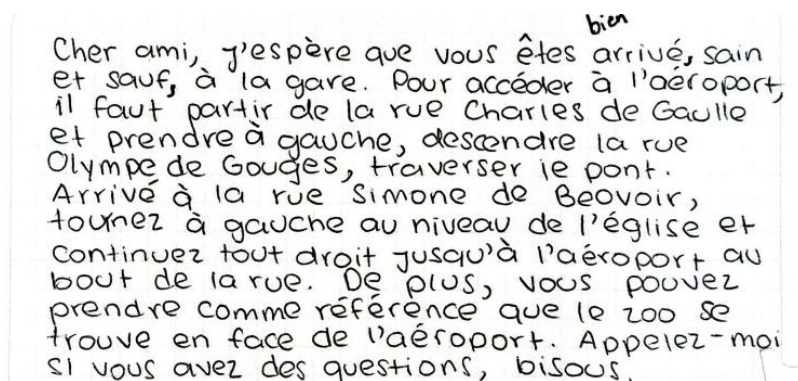 bien
Cher ami, j'espère que vous êtes arrivé, sain
et sauf, à la gare. Pour accéder à l'aéroport,
il faut partir de la rue Charles de Gaulle
et prendre à gauche, descendre la rue
Olympe de Gouges, traverser le pont.
Arrivé à la rue Simone de Beovoir,
tournez à gauche au niveau de l'église et
continuez tout droit jusqu'à l'aéroport au
bout de la rue. De plus, vous pouvez
prendre comme référence que le zoo se
trouve en face de l'aéroport. Appelez-moi
si vous avez des questions, bisous.